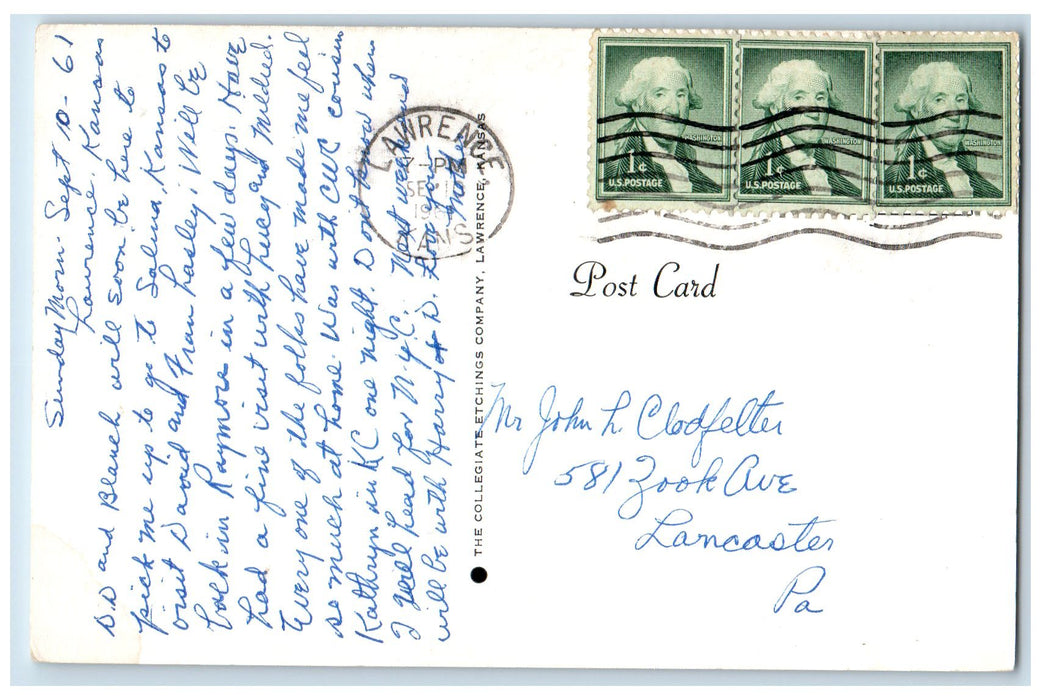 Sunday Morn Sept 10-61
Lawrence. Kansas
D.D and Blanch will soon be here to
pick me up to go to Salina, Kansas to
visit David and Fran Lasley; Will be
back in Raymore in a few days. Have
had a fine visit with Lucy and Mildred.
Every one of the folks have made me feel
so much at home. Was with CWC cousin
Kathryn in KC one night. Dont know when
I will head for N.Y.C. Next week
will be with Harry + D. Love from
Mother
THE COLLEGIATE ETCHINGS COMPANY, LAWRENCE, KANSAS
LAWRENCE
7-PM
SEP
KANS
WASHINGTON
1¢
U.S. POSTAGE
WASHINGTON
1¢
U.S. POSTAGE
WASHINGTON
1¢
U.S. POSTAGE
Post Card
Mr John L Clodfelter
581 Zook Ave
Lancaster
Pa